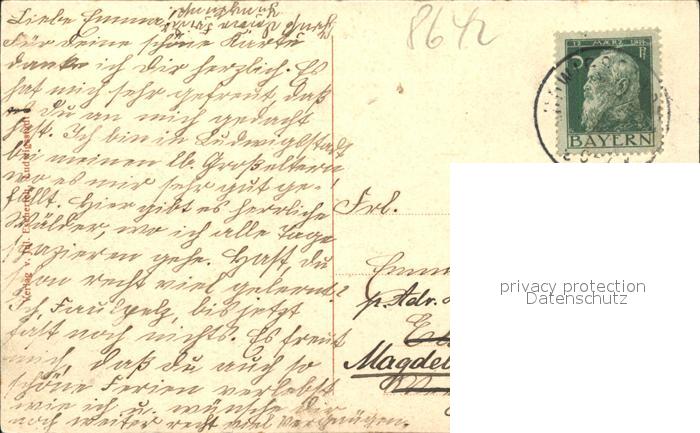 Liebe Emma!
Für deine schöne Karte
danke ich Dir herzlich. Es
hat mich sehr gefreut, daß
Du an mich gedacht
hast. Ich bin in Ludwigstadt
bei meinen lb. Großeltern
wo es mir sehr gut ge-
fällt. Hier gibt es herrliche
Wälder, wo ich alle Tage
spazieren gehe. Hast du
schon recht viel gelernt?
Ich Faulpelz, bis jetzt
fast noch nichts. Es freut
mich, daß du auch so
schöne Ferien verlebst
wie ich u. wünsche Dir
noch weiter recht viel Vergnügen.
8642
12 MÄRZ 1911
5 Pf
BAYERN
Frl.
Emm
p. Adr.
Magdeb
Verlag v. Ludwigsstadt
privacy protection
Datenschutz